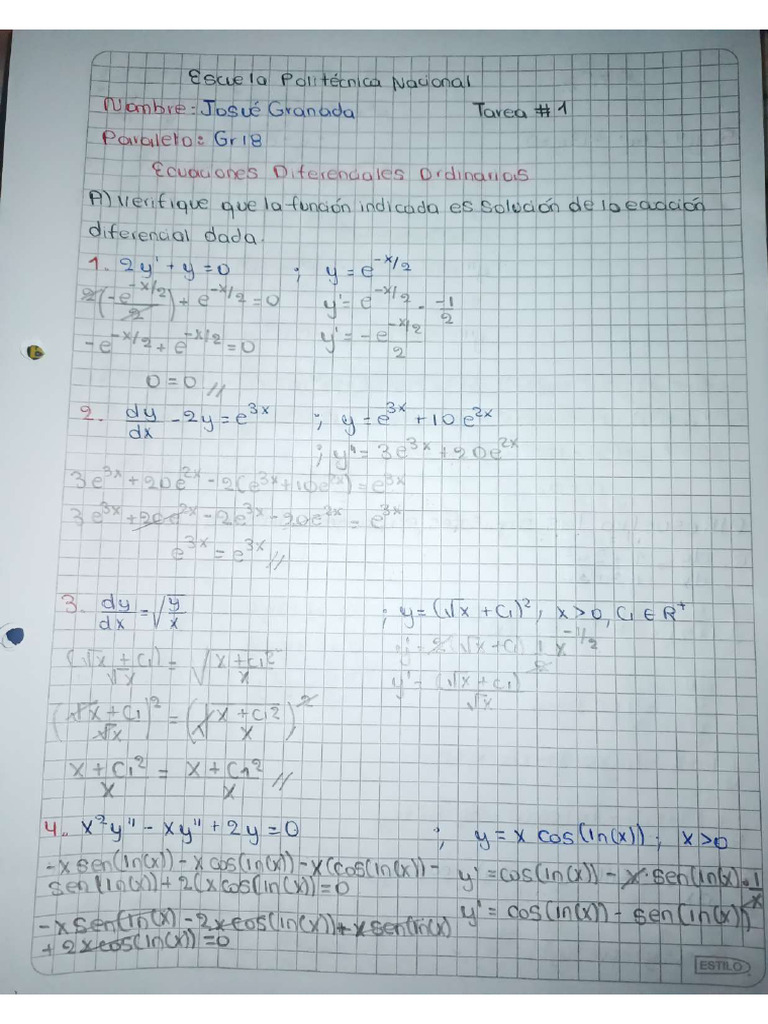 Escuela Politécnica Nacional
Nombre: Josué Granada Tarea #1
Paralelo: Gr18
Ecuaciones Diferenciales Ordinarias
A) Verifique que la función indicada es solución de la ecuación
diferencial dada.
1. 2y' + y = 0 ; y = e^{-x/2}
2(-e^{-x/2}/2) + e^{-x/2} = 0 y' = e^{-x/2} · -1/2
-e^{-x/2} + e^{-x/2} = 0 y' = -e^{-x/2}/2
0 = 0 //
2. dy/dx - 2y = e^{3x} ; y = e^{3x} + 10e^{2x}
; y'' = 3e^{3x} + 20e^{2x}
3e^{3x} + 20e^{2x} - 2(e^{3x} + 10e^{2x}) = e^{3x}
3e^{3x} + 20e^{2x} - 2e^{3x} - 20e^{2x} = e^{3x}
e^{3x} = e^{3x} //
3. dy/dx = √(y/x) ; y = (√x + C₁)², x > 0, C₁ ∈ R⁺
y' = 2(√x + C₁) 1/2 x^{-1/2}
(√x + C₁)/√x = √((x + C₁²)/x) y' = (√x + C₁)/√x
((√x + C₁)/√x)² = (√((x + C₁²)/x))²
(x + C₁²)/x = (x + C₁²)/x //
4. x²y'' - xy'' + 2y = 0 ; y = x cos(ln(x)); x > 0
-x sen(ln(x)) - x cos(ln(x)) - x(cos(ln(x)) - y' = cos(ln(x)) - x · sen(ln(x) · 1/x
sen(ln(x)) + 2(x cos(ln(x)) = 0
-x sen(ln(x) - 2x cos(ln(x)) + x sen(ln(x) y' = cos(ln(x)) - sen(ln(x))
+ 2x cos(ln(x)) = 0
ESTILO